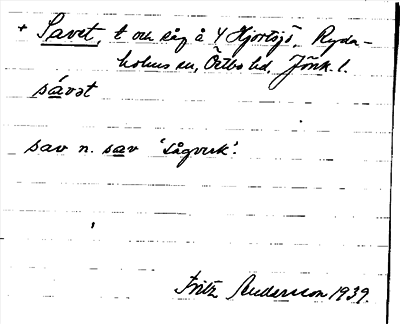 + Savet, t och såg å Y Hjortsjö, Ryda-
holms sn, Östbo hd, Jönk. l.
sávət
sav n. sav 'sågverk'.
Fritz Andersson 1939.